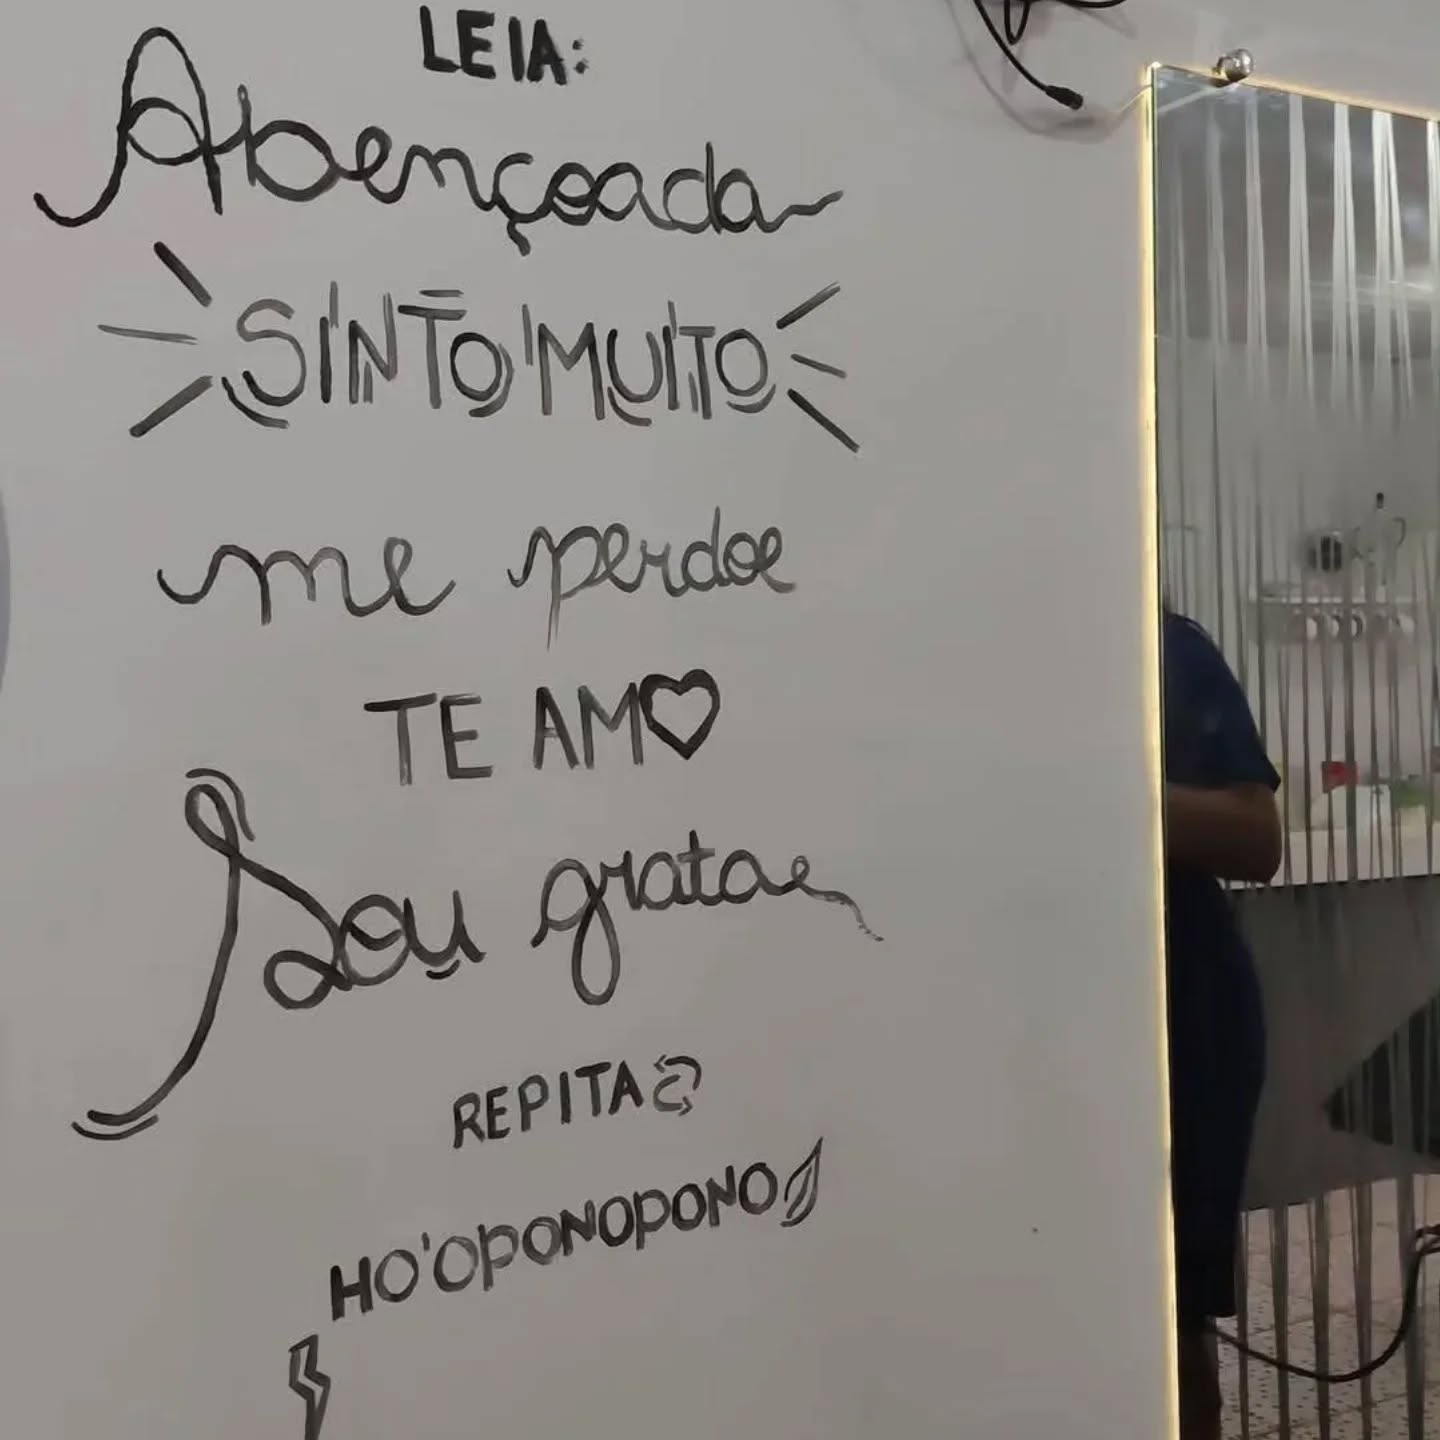 LEIA:
Abençoada
SINTO MUITO
me perdoe
TE AM♡
Sou grata
REPITA
HO'OPONOPONO